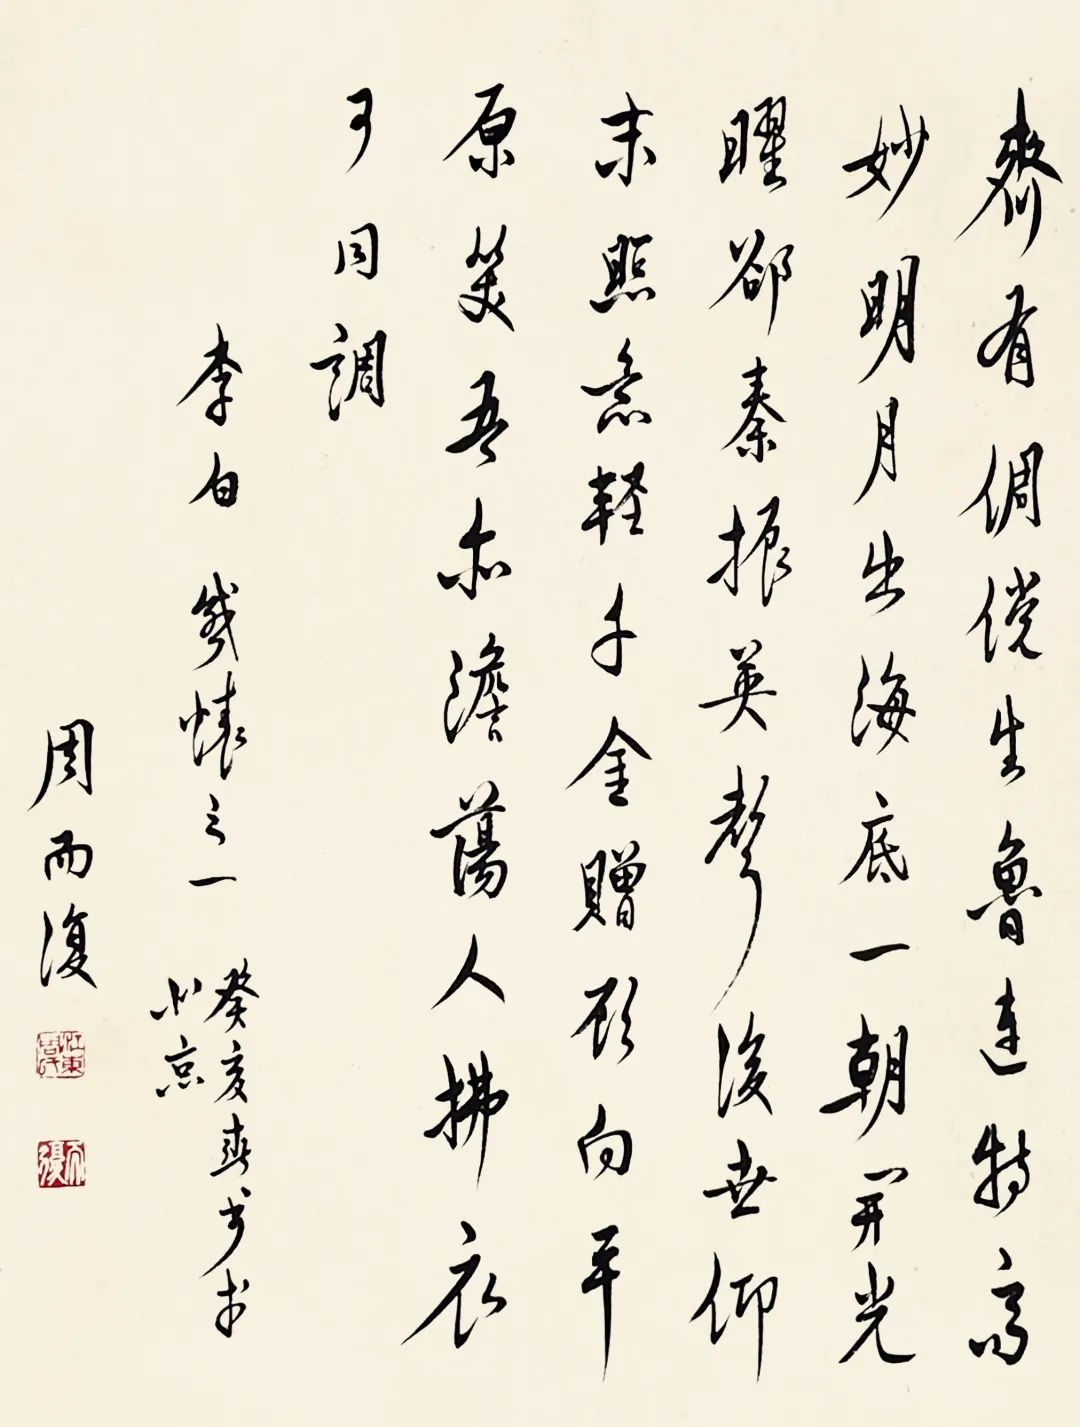 齊有倜儻生魯連特高
妙明月出海底一朝開光
曜郤秦振英聲後世仰
末照意輕千金贈顧向平
原笑吾亦澹蕩人拂衣
可同調
李白感懷之一
癸亥春書於
北京
周而復
江東周氏
而復